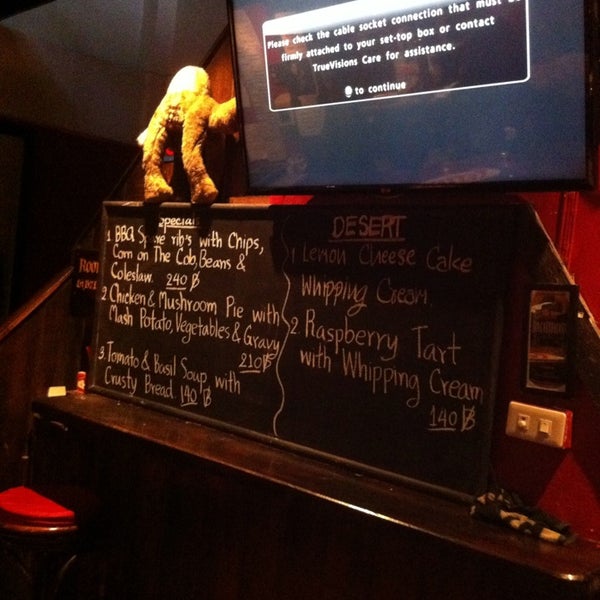 Please check the cable socket connection that must
firmly attached to your set-top box or contact
TrueVisions Care for assistance.
to continue
Special
1. BBQ Spare rib's with Chips,
Corn on The Cob, Beans &
Coleslaw. 240 ฿
2. Chicken & Mushroom Pie with
Mash Potato, Vegetables & Gravy
210 ฿
3. Tomato & Basil Soup with
Crusty Bread. 140 ฿
DESERT
1. Lemon Cheese Cake
Whipping Cream.
2. Raspberry Tart
with Whipping Cream
140 ฿